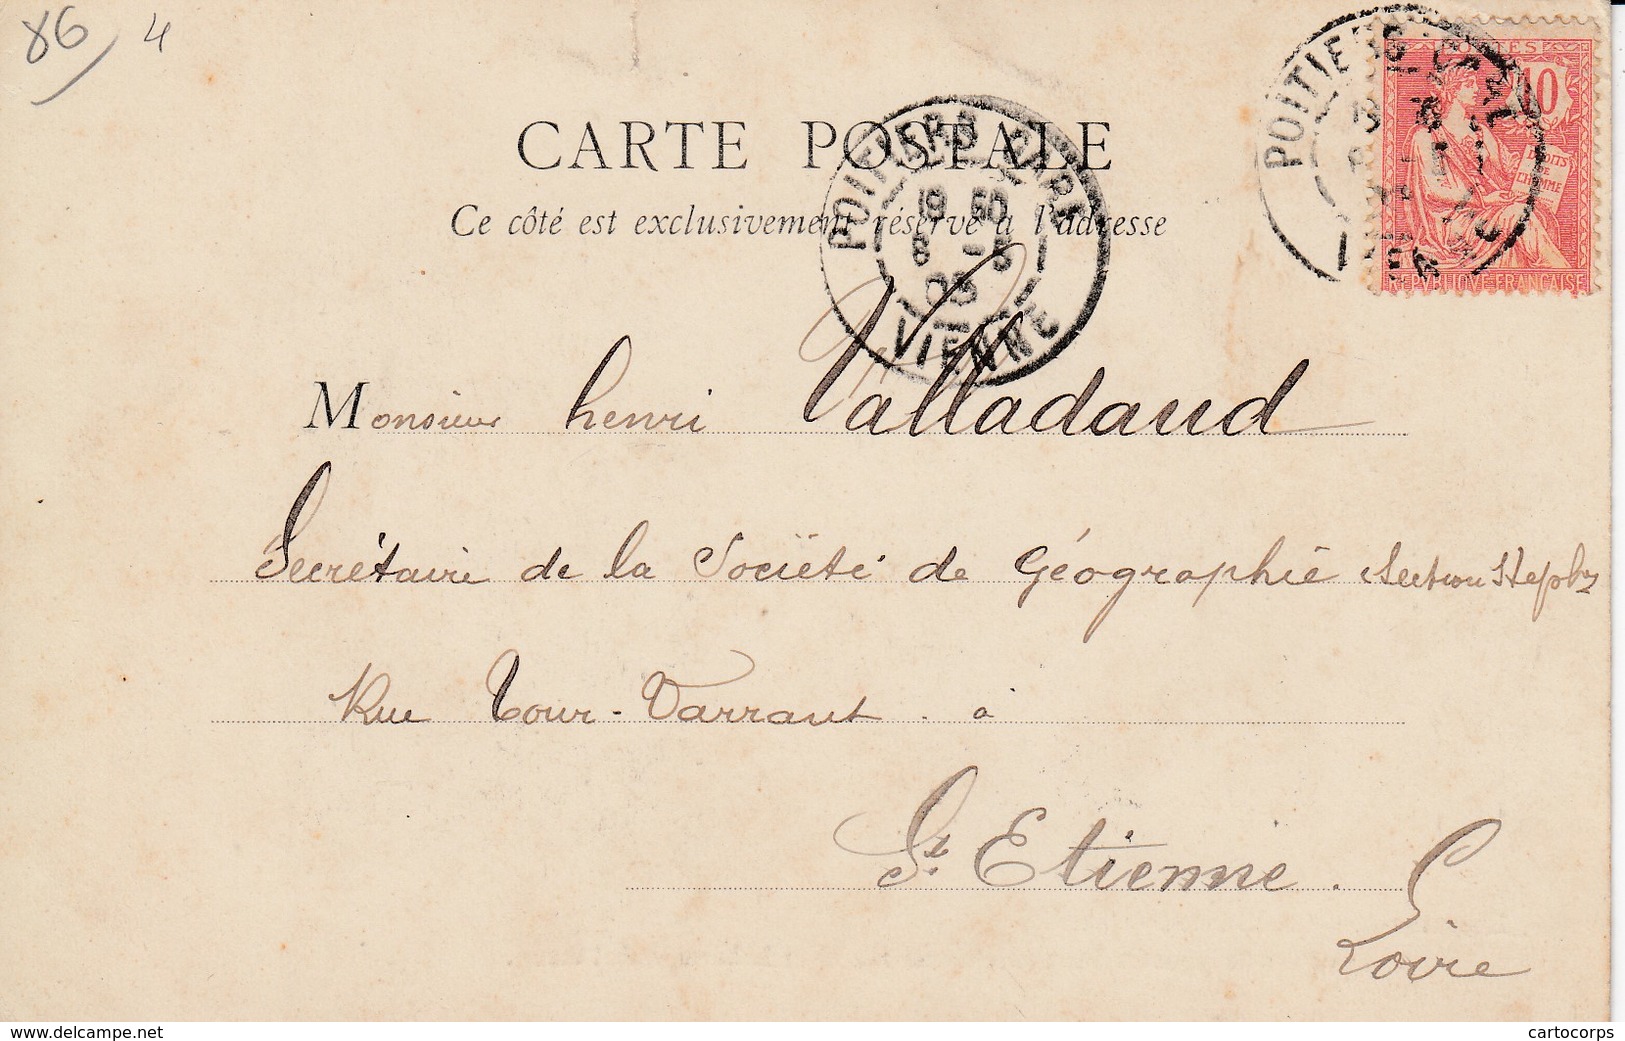 86 4
POSTES
10
DROITS DE L'HOMME
REPUBLIQUE FRANÇAISE
CARTE POSTALE
POITIERS GARE
19 50
8 -5
03
VIENNE
Ce côté est exclusivement réservé à l'adresse
Monsieur henri Valladaud
Secrétaire de la Société de Géographie section
Rue Tour-Varraut. à
St Etienne.
Loire
www.delcampe.net
cartocorps